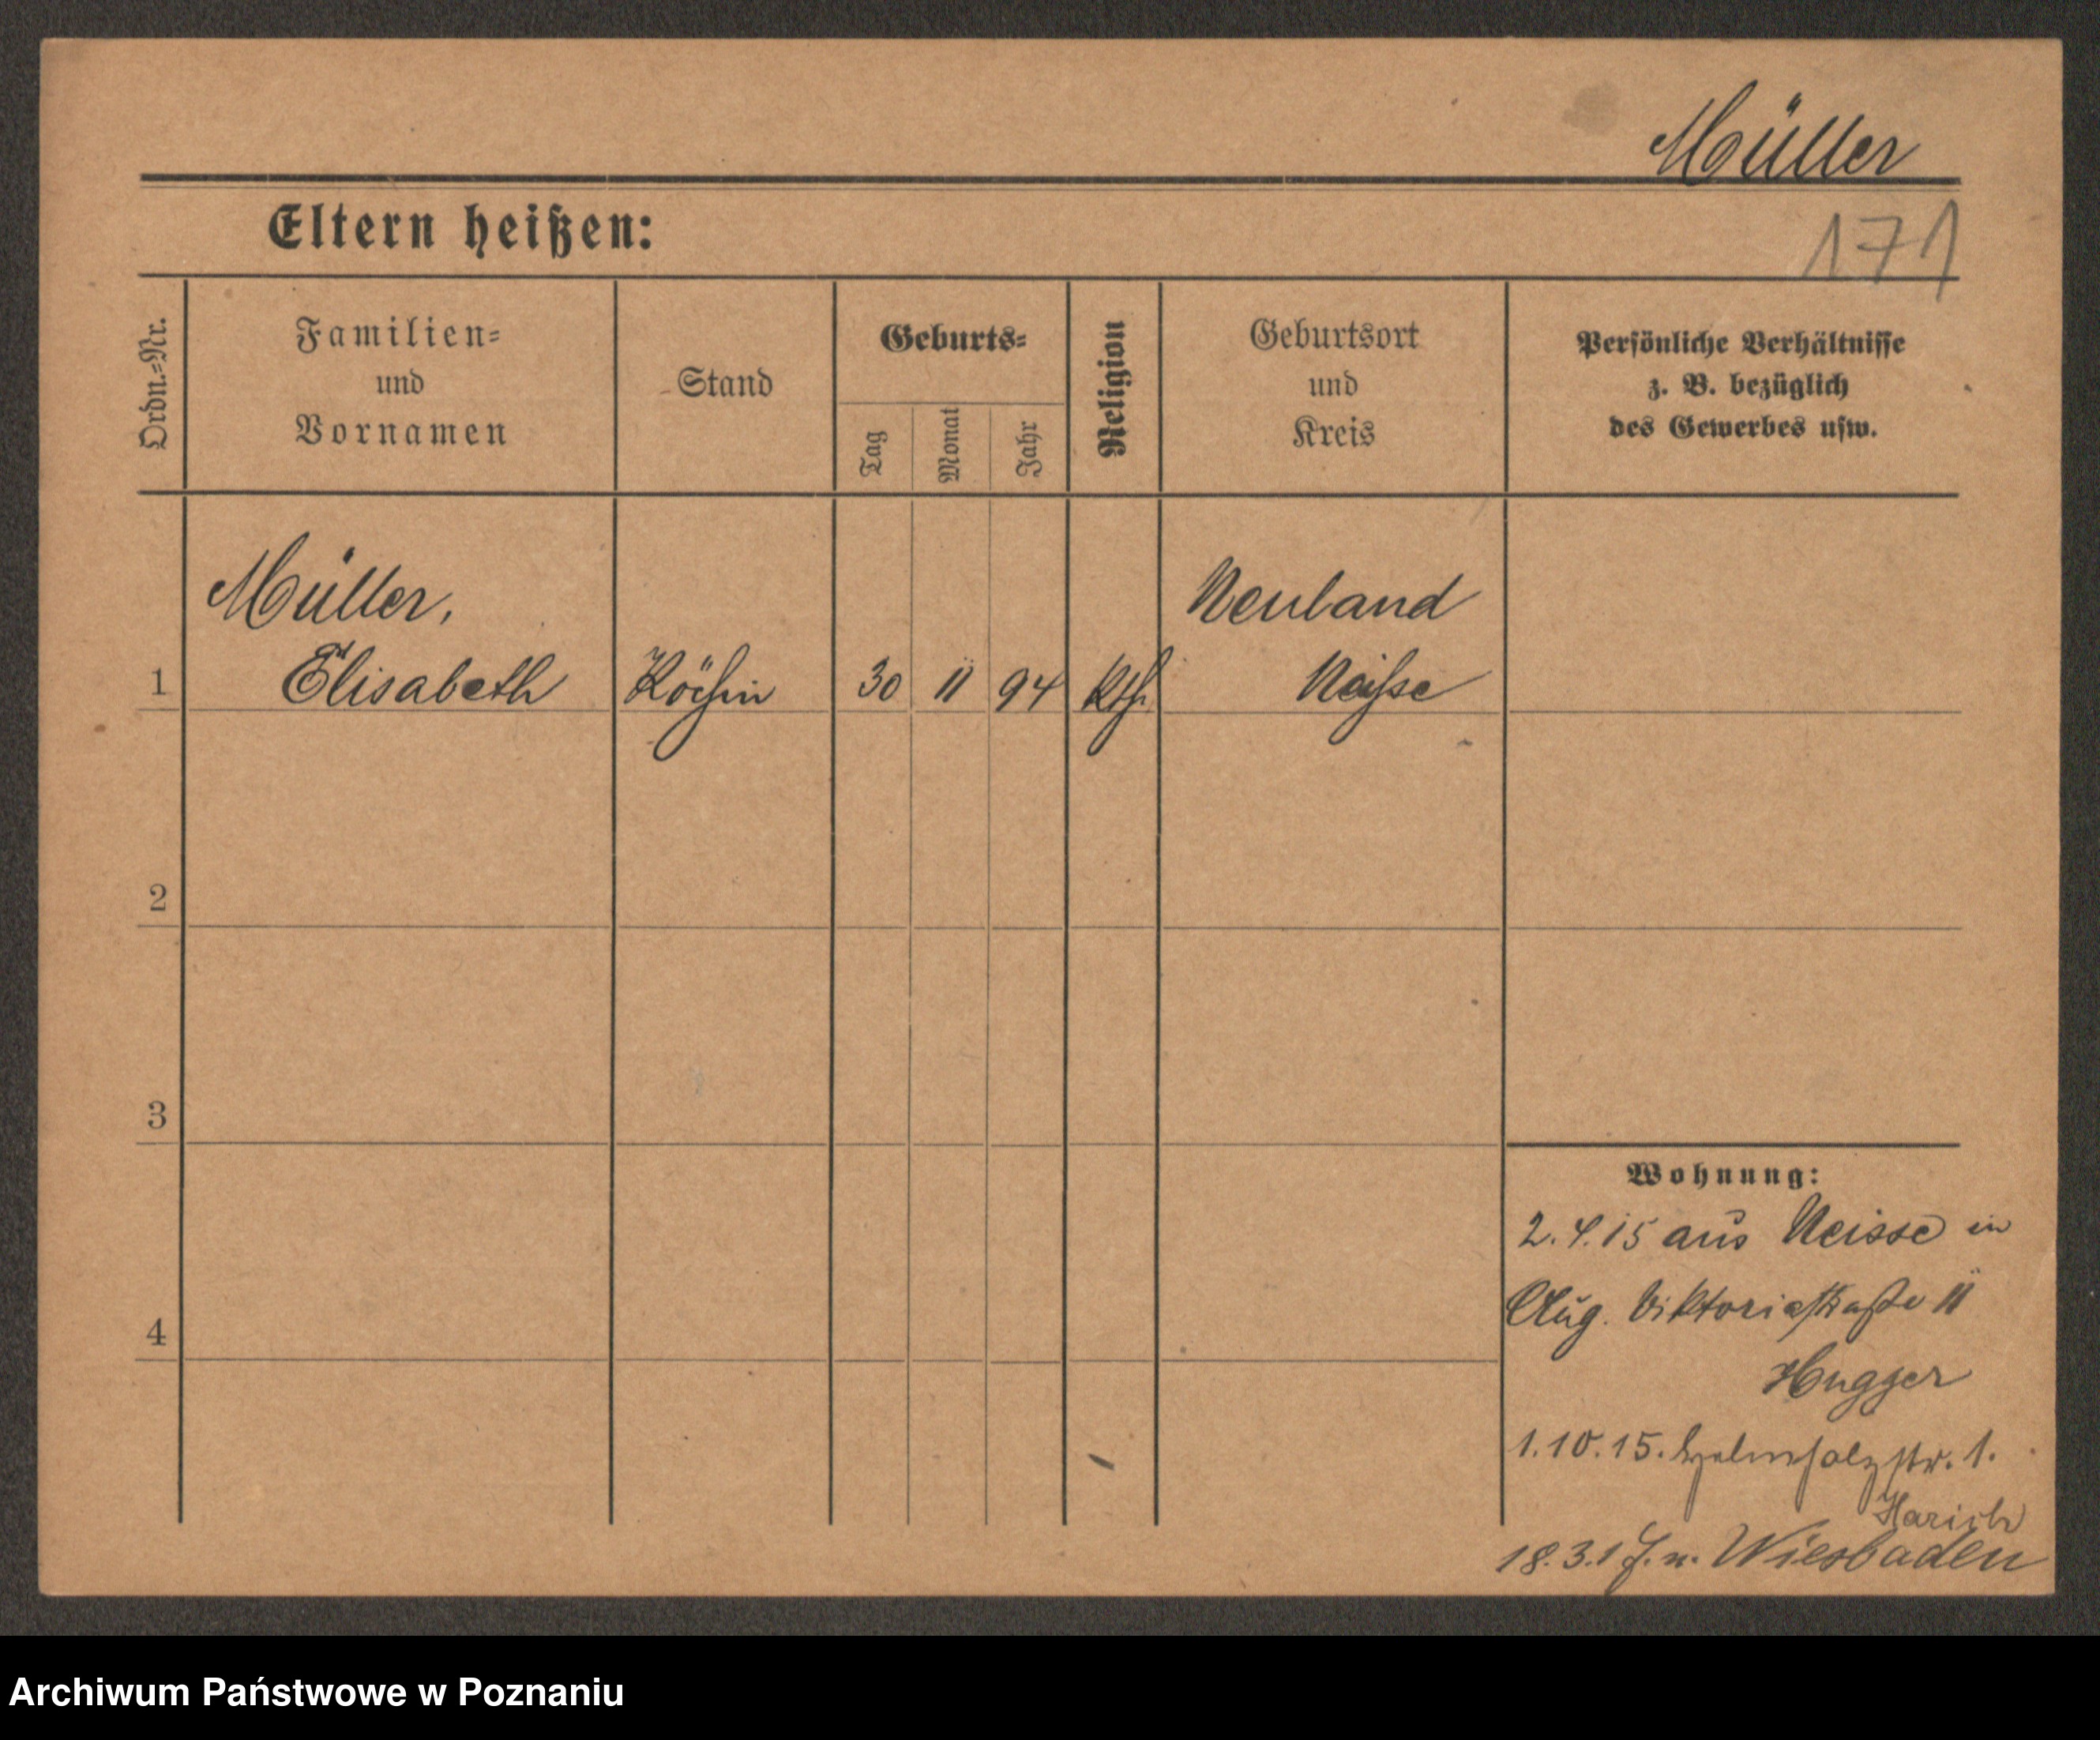 Müller
Eltern heißen:
171
Ordn.-Nr.
Familien-
und
Vornamen
Stand
Geburts-
Tag
Monat
Jahr
Religion
Geburtsort
und
Kreis
Persönliche Verhältnisse
z. B. bezüglich
des Gewerbes usw.
Müller,
Neuland
1 Elisabeth Köchin 30 11 94 kth. Neisse
2
3
4
Wohnung:
2.4.15 aus Neisse in
Aug. Viktoriastraße 11
Hugger
1.10.15. Helmholzstr. 1.
18.3.17. n. Wiesbaden
Archiwum Państwowe w Poznaniu